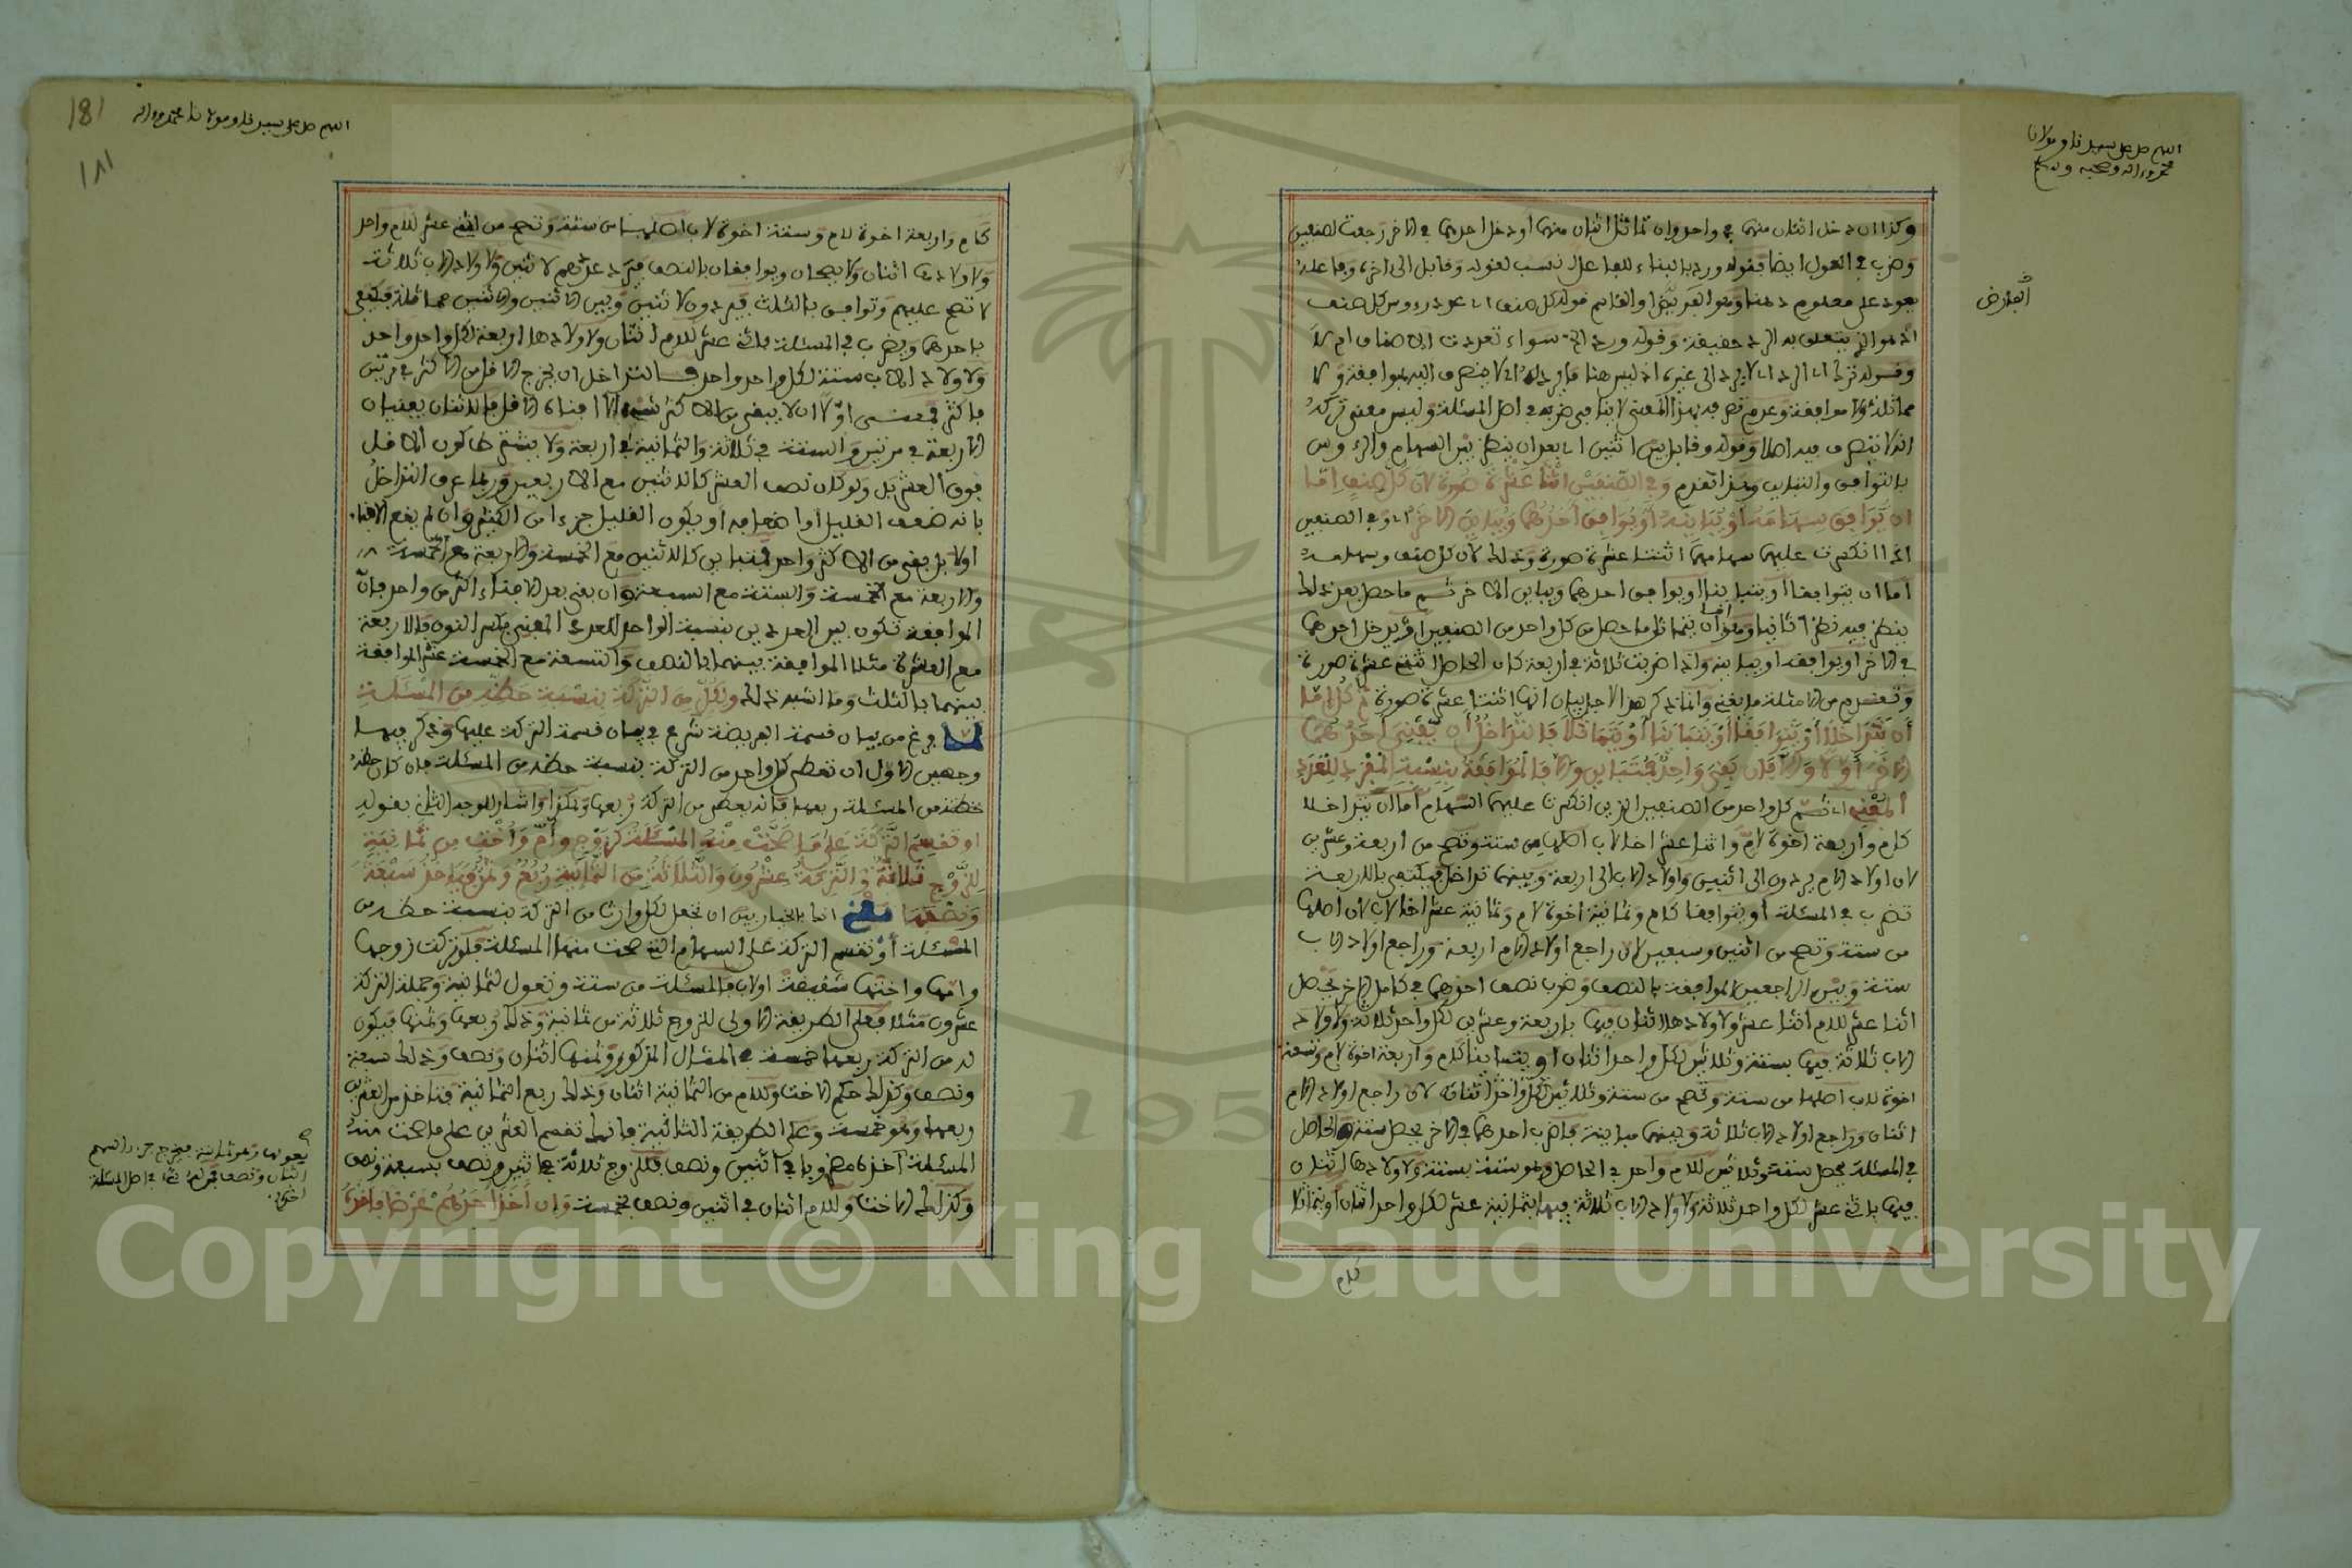 اللهم صل على سيدنا ومولانا
محمد واله وصحبه وسلم
وكذا ان دخل اثنان منها في واحد وان تماثل اثنان منها او دخل احدهما في الاخر رجعت لصنفين
وضرب في العول ايضا فقوله ورد بالبناء للفاعل نسب لقوله وقابل الى اخره وفاعله
يعود على معلوم ذهنا وهو الفرضي او القاسم قوله كل صنف اي عدد رءوس كل صنف
اذ هو الذي يتعلق به الرد حقيقة وقوله ورد الخ سواء تعددت الاصناف ام لا
مماثلة ولا موافقة وعدم تصرفه بهذا المعنى لا ينافي ضربه في اصل المسئلة وليس معنى تركه
انه لا يتصرف فيه اصلا وقوله وقابل بين اثنين اي بعد ان ينظر بين السهام والرءوس
بالتوافق والتباين وقد تقدم وفي الصنفين اثنتا عشرة صورة لان كل صنف اما
ان توافق سهامه او تباينه او يوافق احدهما ويباين الاخر اي وفي الصنفين
اذا انكسرت عليهما سهامهما اثنتا عشرة صورة وذلك لان كل صنف وسهامه
اما ان يتوافقا او يتباينا او يوافق احدهما ويباين الاخر ثم ما حصل بعد ذلك
ينظر فيه نظرا ثانيا وهو اما ان يتماثل ما حصل من كل واحد من الصنفين او يدخل احدهما
في الاخر او يوافقه او يباينه واذا ضربت ثلاثة في اربعة كان الحاصل اثنتي عشرة صورة
وتفهم من الامثلة ما بقي وانما ذكر هذا لاجل بيان انها اثنتا عشرة صورة ثم كل اما
ان يتداخلا او يتوافقا او يتباينا او يتماثلا فالتداخل ان يفني احدهما
الاخر اولا والا فان بقي واحد فمتباين والا فالموافقة بنسبة المفرد للعدد
المفني اي ثم كل واحد من الصنفين الذين انكسرت عليهما السهام اما ان يتداخلا
كام واربعة اخوة لام واثنا عشر اخا لاب اصلها من ستة وتصح من اربعة وعشرين
لان اولاد الام يردون الى اثنين واولاد الاب الى اربعة وبينهما تداخل فيكتفى بالاربعة
تضرب في المسئلة او يتوافقا كام وثمانية اخوة لام وثمانية عشر اخا لاب لان اصلها
من ستة وتصح من اثنين وسبعين لان راجع اولاد الام اربعة وراجع اولاد الاب
ستة وبين الراجعين الموافقة بالنصف وضرب نصف احدهما في كامل الاخر يحصل
اثنا عشر للام اثنا عشر ولاولادها اثنان فيها باربعة وعشرين لكل واحد ثلاثة ولاولاد
الاب ثلاثة فيها بستة وثلاثين لكل واحد اثنان او يتباينا كام واربعة اخوة لام وتسعة
اخوة لاب اصلها من ستة وتصح من ستة وثلاثين لان راجع اولاد الام
اثنان وراجع اولاد الاب ثلاثة وبينهما مباينة فاضرب احدهما في الاخر يحصل ستة والحاصل
في المسئلة يحصل ستة وثلاثين للام واحد في الحاصل وهو ستة بستة ولاولادها اثنان
فيها باثني عشر لكل واحد ثلاثة ولاولاد الاب ثلاثة فيها بثمانية عشر لكل واحد اثنان او يتماثلا
كام
العارض
181
١٨١
اللهم صل على سيدنا ومولانا محمد واله
كام واربعة اخوة لام وستة اخوة لاب اصلها من ستة وتصح من اثني عشر للام واحد
ولاولادها اثنان ولا يصحان ويوافقان بالنصف فيرد عددهم لاثنين ولاولاد الاب ثلاثة
لا تصح عليهم وتوافق بالثلث فيردون لاثنين وبين الاثنين والاثنين مماثلة فيكتفى
باحدهما ويضرب في المسئلة باثني عشر للام اثنان ولاولادها اربعة لكل واحد واحد
ولاولاد الاب ستة لكل واحد واحد فالتداخل ان يخرج الاقل من الاكثر في مرتين
فاكثر اولا اي لا يبقى من الاكثر شيء الا افناه الاقل فالاثنان يفنيان
الاربعة في مرتين والستة في ثلاثة والثمانية في اربعة ولا يشترط كون الاقل
فوق العشر بل ولو كان نصف العشر كالاثنين مع الاربعين وربما عرف التداخل
بانه ضعف القليل او اضعافه او يكون القليل جزءا من الكثير وان لم يقع الافناء
اولا بل بقي من الاكثر واحد فمتباين كالاثنين مع الخمسة والاربعة مع الخمسة
والاربعة مع الخمسة والستة مع السبعة وان بقي بعد الافناء اكثر من واحد فان
الموافقة تكون بين العددين بنسبة الواحد للعدد المفني بكسر النون فالاربعة
مع العشرة مثلا الموافقة بينهما بالنصف والتسعة مع الخمسة عشر الموافقة
بينهما بالثلث وما اشبه ذلك ولكل من التركة بنسبة حظه من المسئلة
لما فرغ من بيان قسمة الفريضة شرع في بيان قسمة التركة عليها وذكر فيها
وجهين الاول ان تعطي كل واحد من التركة بنسبة حظه من المسئلة فان كان حظه
حظه من المسئلة ربعها فانه يعطى من التركة ربعها وهكذا واشار للوجه الثاني بقوله
او تقسم التركة على ما صحت منه المسئلة كزوج وام واخت من ثمانية
للزوج ثلاثة والتركة عشرون والثلاثة من الثمانية ربع وثمن فياخذ سبعة
ونصفا يعني انك بالخيار بين ان تجعل لكل وارث من التركة بنسبة حظه من
المسئلة او تقسم التركة على السهام التي صحت منها المسئلة فلو تركت زوجها
وامها واختها شقيقة او لاب فالمسئلة من ستة وتعول لثمانية وجملة التركة
عشرون مثلا فعلى الطريقة الاولى للزوج ثلاثة من ثمانية وذلك ربعها وثمنها فيكون
له من التركة ربعها خمسة في المثال المذكور وثمنها اثنان ونصف وذلك سبعة
ونصف وكذلك حكم الاخت وللام من الثمانية اثنان وذلك ربع الثمانية فتاخذ من العشرين
ربعها وهو خمسة وعلى الطريقة الثانية فانك تقسم العشرين على ما صحت منه
المسئلة اخذه مضروبا في اثنين ونصف فللزوج ثلاثة في اثنين ونصف بسبعة ونصف
وكذلك الاخت وللام اثنان في اثنين ونصف بخمسة وان اخذ احدهم عرضا فاخذه
بعولها وهو ثمانية فيخرج جزء السهم
اثنان ونصف